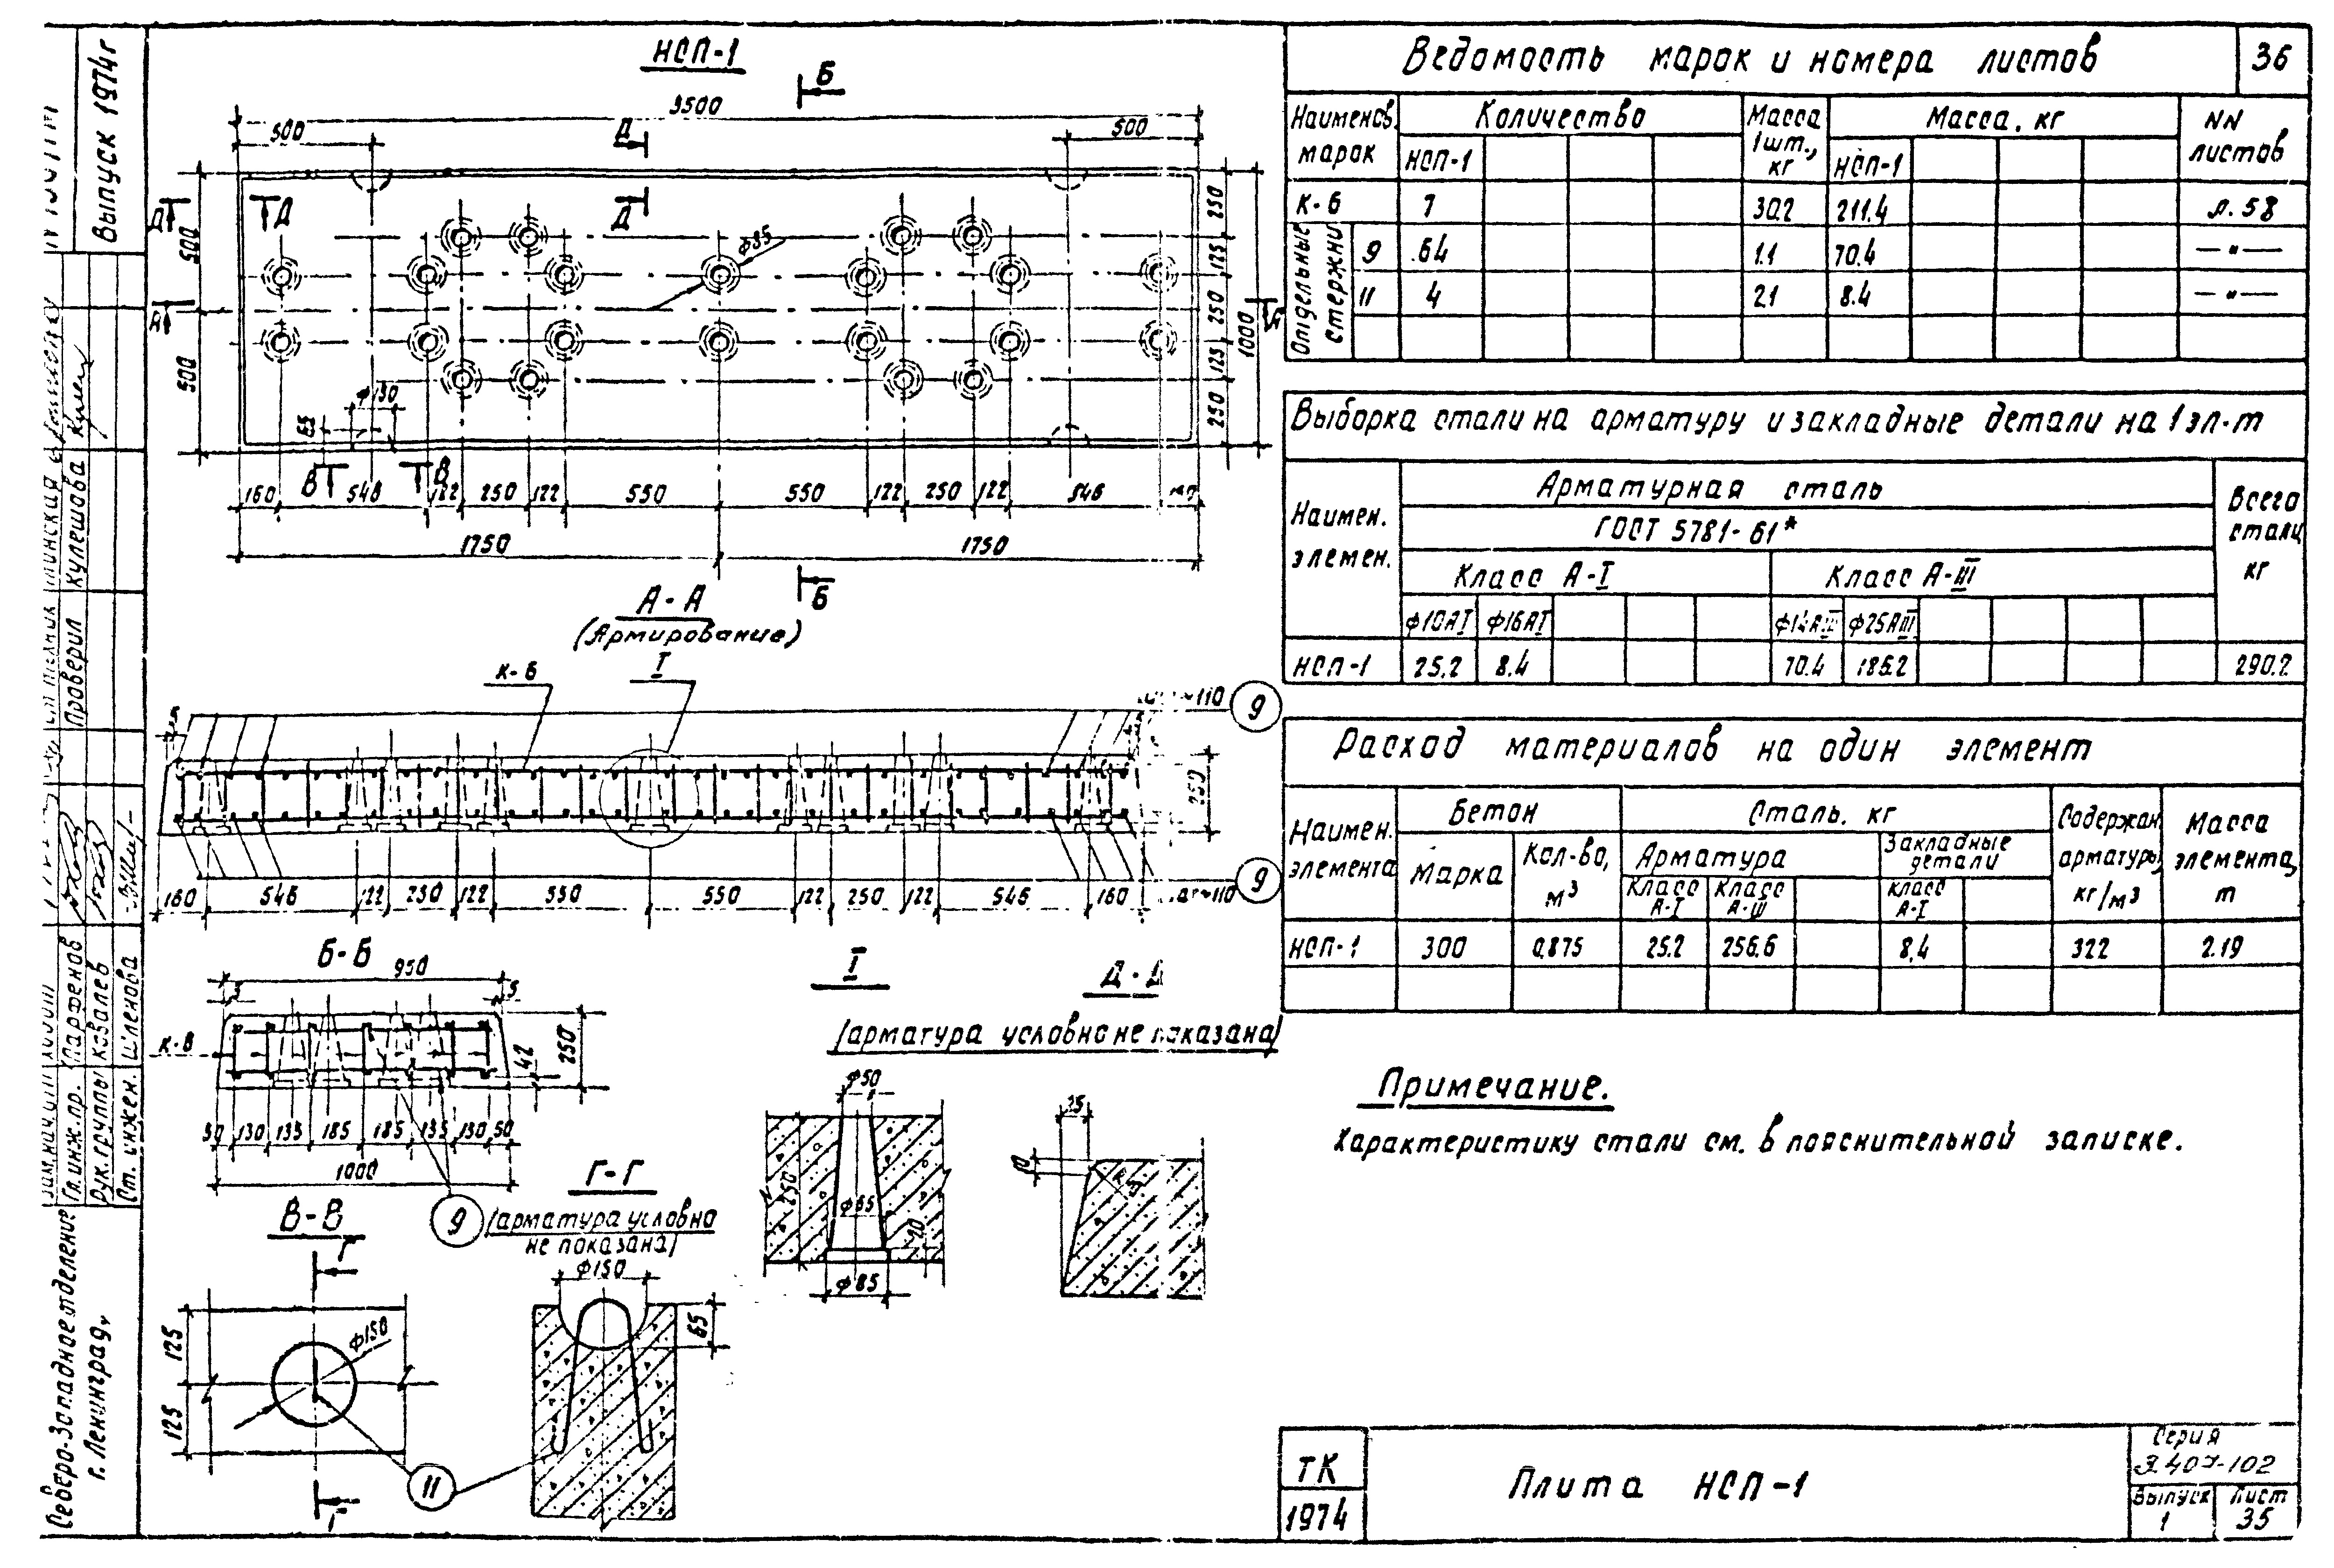 НСП-1
Б
3500
500
Д
500
Д
Д
Д
А
А
ф85
ф130
65
500
500
250
125
250
125
250
1000
В
В
160 546 122 250 122 550 550 122 250 122 546
1750 1750
Б
А-А
(Армирование)
К-6
I
9
250
9
160 546 122 250 122 550 550 122 250 122 546 160
Б-Б
950
5 5
К-6
42
250
50 130 135 185 185 135 130 50
1000
9
В-В
Г
ф150
125
125
Г
11
Г-Г
/арматура условно
не показана/
ф150
65
I
Д-Д
/арматура условно не показана/
ф50
250
ф65
20
ф85
25
10
Ведомость марок и номера листов 36
Наименов. марок Количество Масса 1шт., кг Масса, кг NN листов
НСП-1 НСП-1
К-6 7 30.2 211.4 л. 58
Отдельные стержни
9 64 1.1 70.4 —"—
11 4 2.1 8.4 —"—
Выборка стали на арматуру и закладные детали на 1 эл-т
Наимен. элемен. Арматурная сталь Всего стали, кг
ГОСТ 5781-61*
Класс А-I Класс А-III
ф10АI ф16АI ф14АIII ф25АIII
НСП-1 25.2 8.4 70.4 186.2 290.2
Расход материалов на один элемент
Наимен. элемента Бетон Сталь, кг Содержан. арматуры, кг/м3 Масса элемента, т
Марка Кол-во, м3 Арматура Закладные детали
Класс А-I Класс А-III Класс А-I
НСП-1 300 0.875 25.2 256.6 8.4 322 2.19
Примечание.
Характеристику стали см. в пояснительной записке.
ТК
1974
Плита НСП-1
Серия
3.407-102
Выпуск
1
Лист
35
Выпуск 1974г
Проверил Кулешова
Гл.инж.пр. Парфенов
Рук.группы Ковалев
Ст. инжен. Шленова
Северо-Западное отделение
г. Ленинград